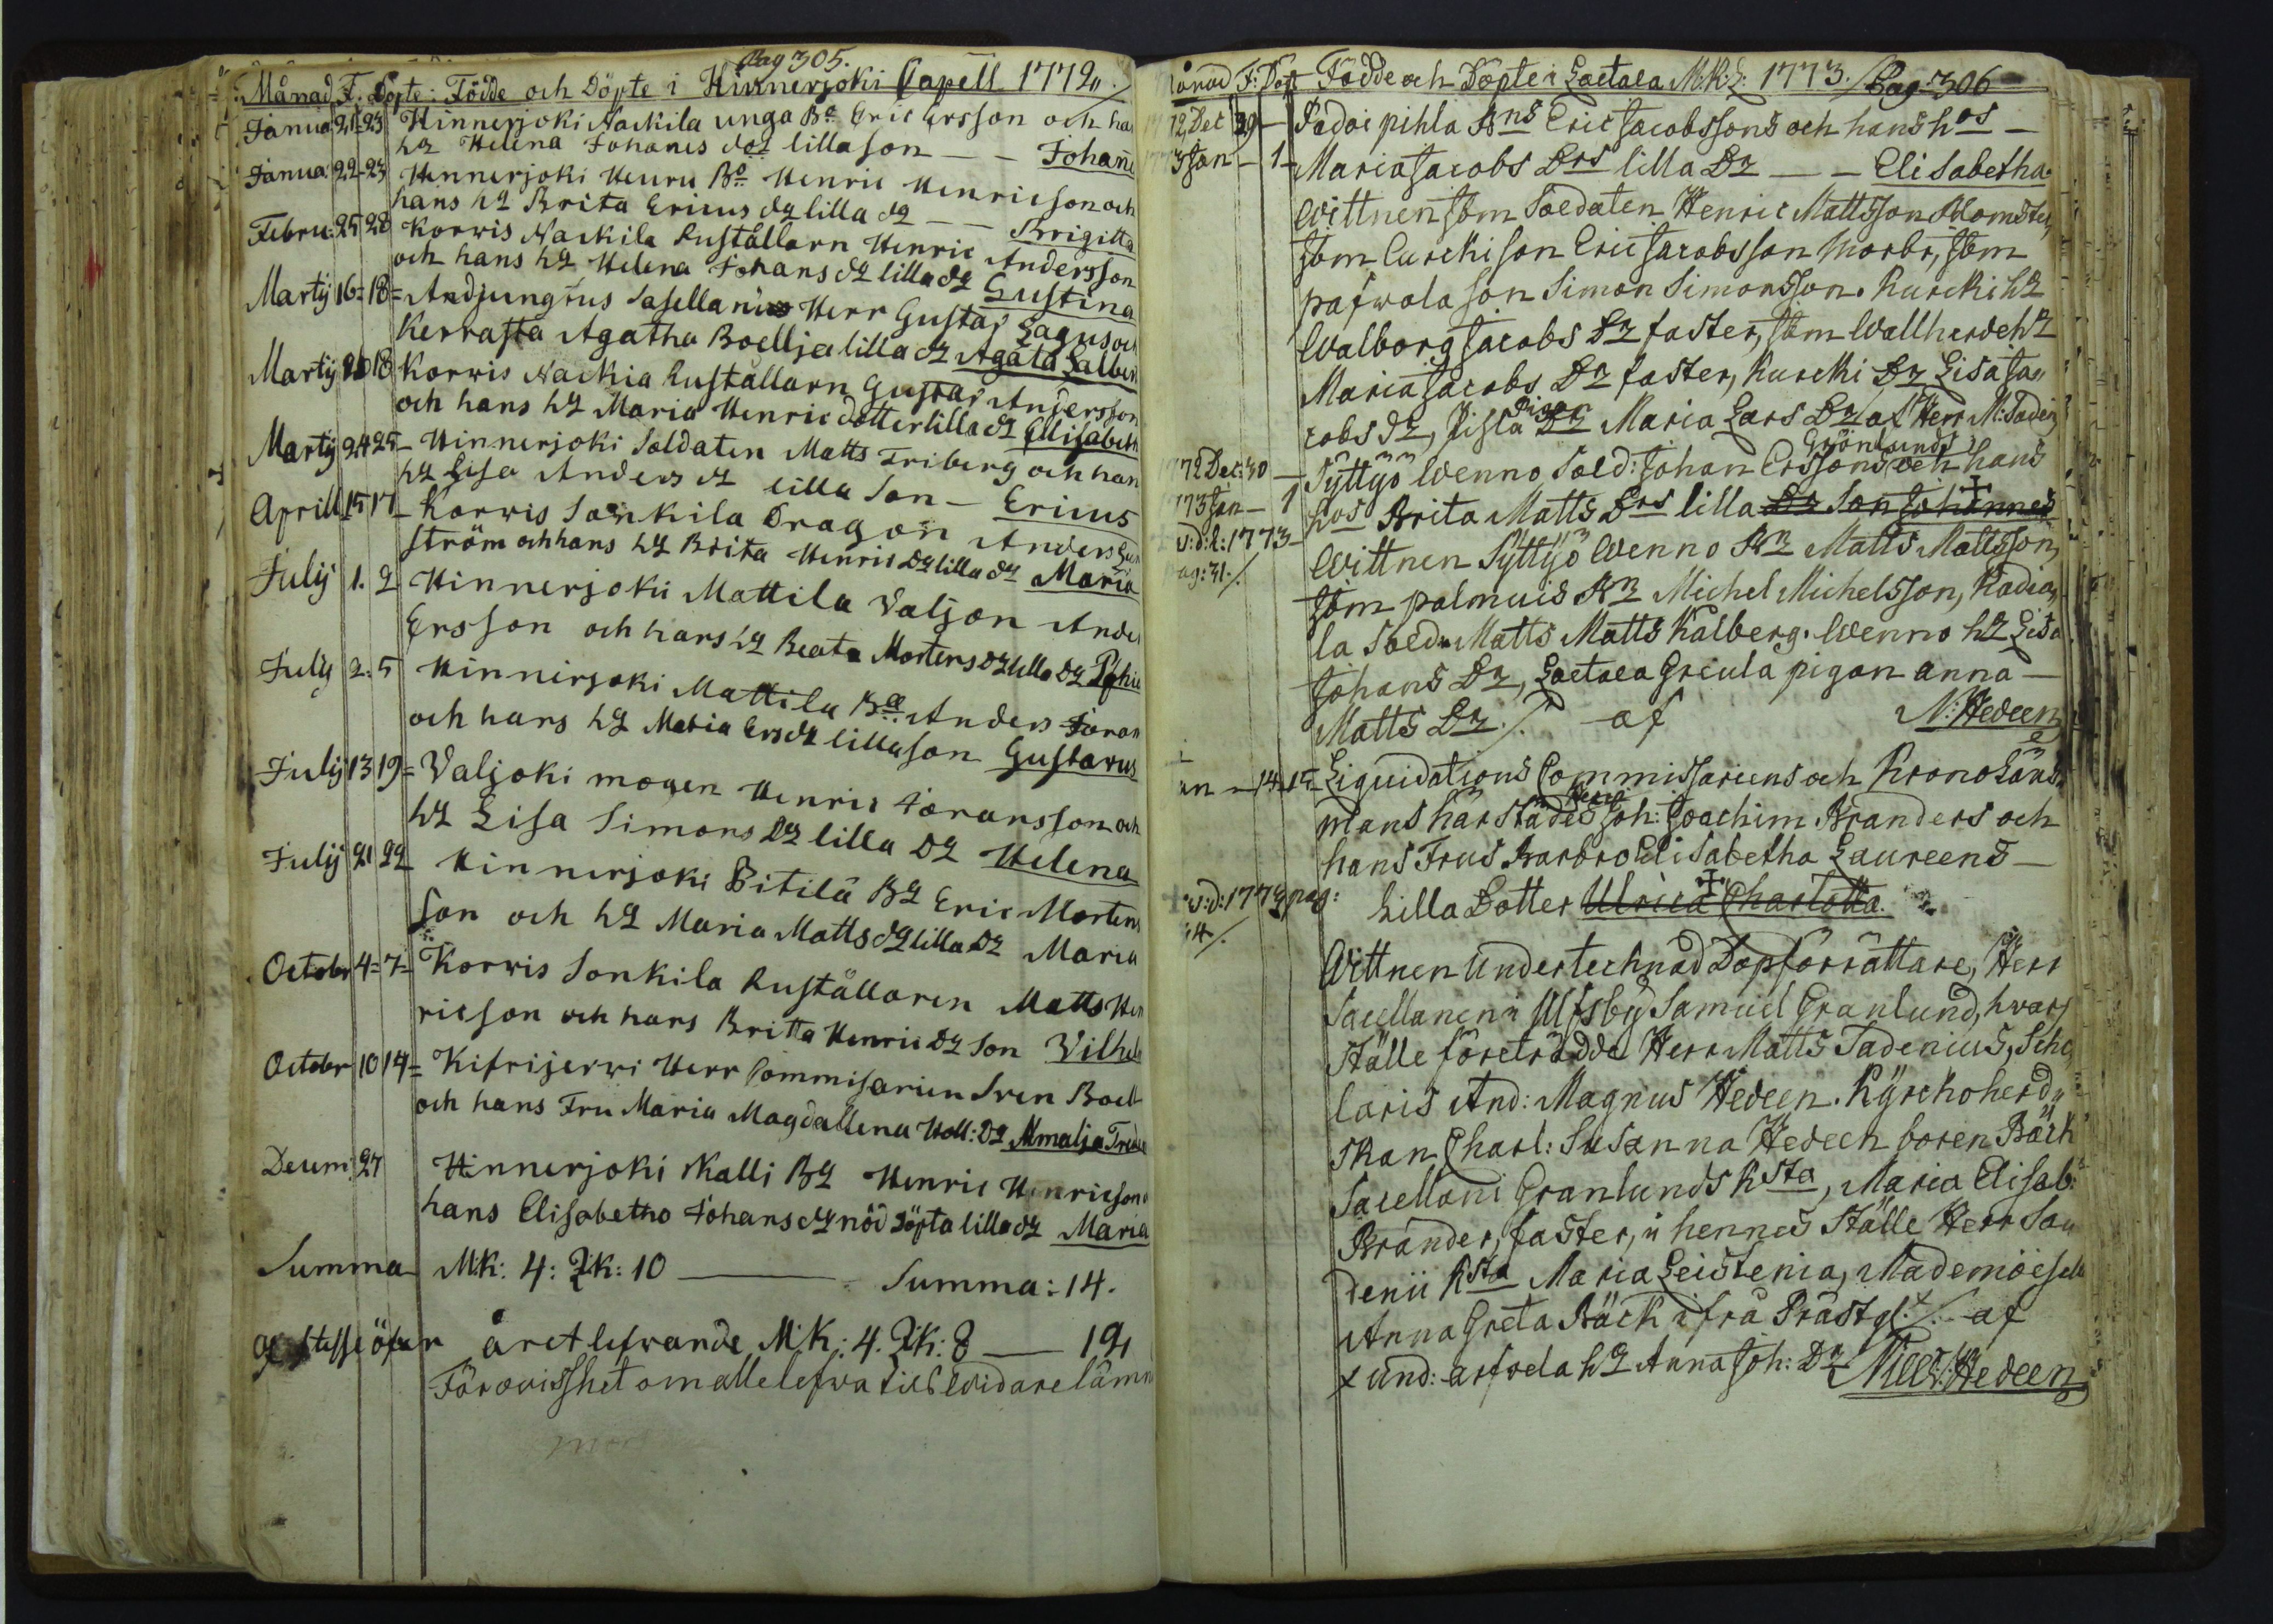 Pag 305.
Månad F. Döpte: Födde och Döpte i Hinnerjoki Capell 1772.
Janua: 21 23 Hinnerjoki Nackila unga Bo: Eric Ersson och han
hu Helena Johanes dot lilla son - - Johañe
Janua: 22-23 Hinnerjoki Heuru Bo: Henric Henricson och
hans hu Brita Ericus dr lilla dr - Brigitta
Febru: 25 28 Korwis Nackila Rustållarn Henric Andersson
och hans hu Helena Johans dr lilla dr Gustina
Martij 16=18= Andjungtus Sasellanus Herr Gustaf Lagus och
Kerrasta Agatha Boellja lilla dr Agata Lalben
Martij 18 Korwis Nackia Rustållarn Gustaf Andersson
och hans hu Maria Henric dotter lilla dr Ellisabeth
Martij 24 25 - Hinnerjoki Soldaten Matts Friberg och han
hu Lisa Anders dr lilla Son - Ericus
Aprill 15 17 - Korwis Sonkila Dragon Anders
ström och hans hu Brita Henric Dr lilla dr Maria
Julij 1. 2 Hinnerjoki Mattila Valjon Ande
Ersson och hans hu Beata Mortens Dr lilla Dr
Julij 2. 5 Hinnerjoki Mattila Bo Anders Joran
och hans hu Maria Ers dr lilla son Gustavus
Julij 13 19= Valjoki mogen Henric Joransson och
hu Lisa Simons Dr lilla Dr Helena
Julij 21 22 Hinnerjoki Pitilä Br Eric Mortens
Son och hu Maria Matts dr lilla Dr Maria
Octobr 4=7= Korwis Sonkila Rustållaren Matts Hen
ricson och hans Britta Henric Dr Son Vilhel
Octobr 10 14= Kifrijerwi Herr Commisarien Sven Boell
och hans Fru Maria Magdallena Holl: Dr Amalja
Decem: 27 Hinnerjoki Kalli Br Henric Henricson
hans Elisabetha Johans dr nöd döpta lilla dr Maria
Summa Mk: 4: Qk: 10 ——— Summa: 14.
af desse öfver året lefvande M:k: 4. Qk: 8 — 12
För ovisshet om alle lefva till widare lämn
Månad F: Döpt Födde och Döpte i Laetala M:K:L: 1773. Pag: 306
1772 Dec 29 - Padoi pihla Bns Eric Jacobssons och hans hos -
1773 Jan - 1 - Maria Jacobs Drs lilla Dr - - Elisabetha.
Wittnen som Soldaten Henric Mattsson Blomster,
som Curcki son Eric Jacobsson Morbr, som
pafwola son Simon Simonsson. Kurcki hu
Walborg Jacobs Dr faster, som Wallherde hu
Maria Jacobs Dr faster, Kurcki Dr Lisa Ja"
cobs dr, Pihla Pigan Maria Lars Dr af Herr M: Tadeni
Grönlunds
1772 Dec: 30 - Syttyö Wenno Sold: Johan Erssons och hans
1773 Jan - 1 hos Brita Matts Drs lilla Dr Son Johannes
v:d:l: 1773 - Wittnen Syttyö Wenno Br Matts Mattsson,
pag: 31. som palmuis Br Michel Michelsson, Kadia,
la Sold. Matts Matts Kalberg. Wenno hu Lisa
Johans Dr, Laetala Greula pigan Anna -
Matts Dr. /. af N: Hedeen
Jan - 14. 15 - Liquidations Commissariens och Krono Läns
mans härstädes Herr Joh: Joachim Branders och
hans Frus Barbro Elisabetha Laureens -
v:d: 1773 pag: Lilla Dotter Ulrica Charlotta.
Wittnen Undertecknad Dopförrättare, Herr
Sacellanen i Ulfsby Samuel Granlund, hvars
Ställe företrädde Herr Matts Tadenius, Scho
laris And: Magnus Hedeen. Kyrckoherd"
skan Charl: Susanna Hedeen boren Bäck
Sacellani Granlunds Ksta, Maria Elisab:
Brander, faster, i hennes Ställe Herr Sa
denii Ksta Maria Leistenia, Mademoisell
Anna Greta Bäck ifrå Prästg:+ /. af
x und: arfvela hu Anna Joh: Dr Nic: Hedeen